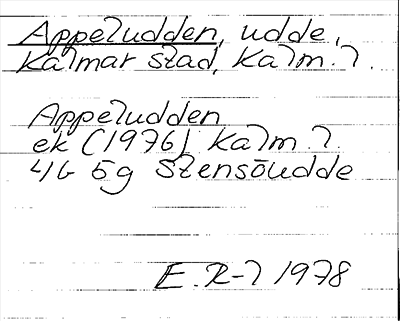 Appeludden, udde,
Kalmar stad, Kalm. l.
Appeludden
ek (1976) Kalm l.
4G 5g Stensöudde
E. R-l 1978